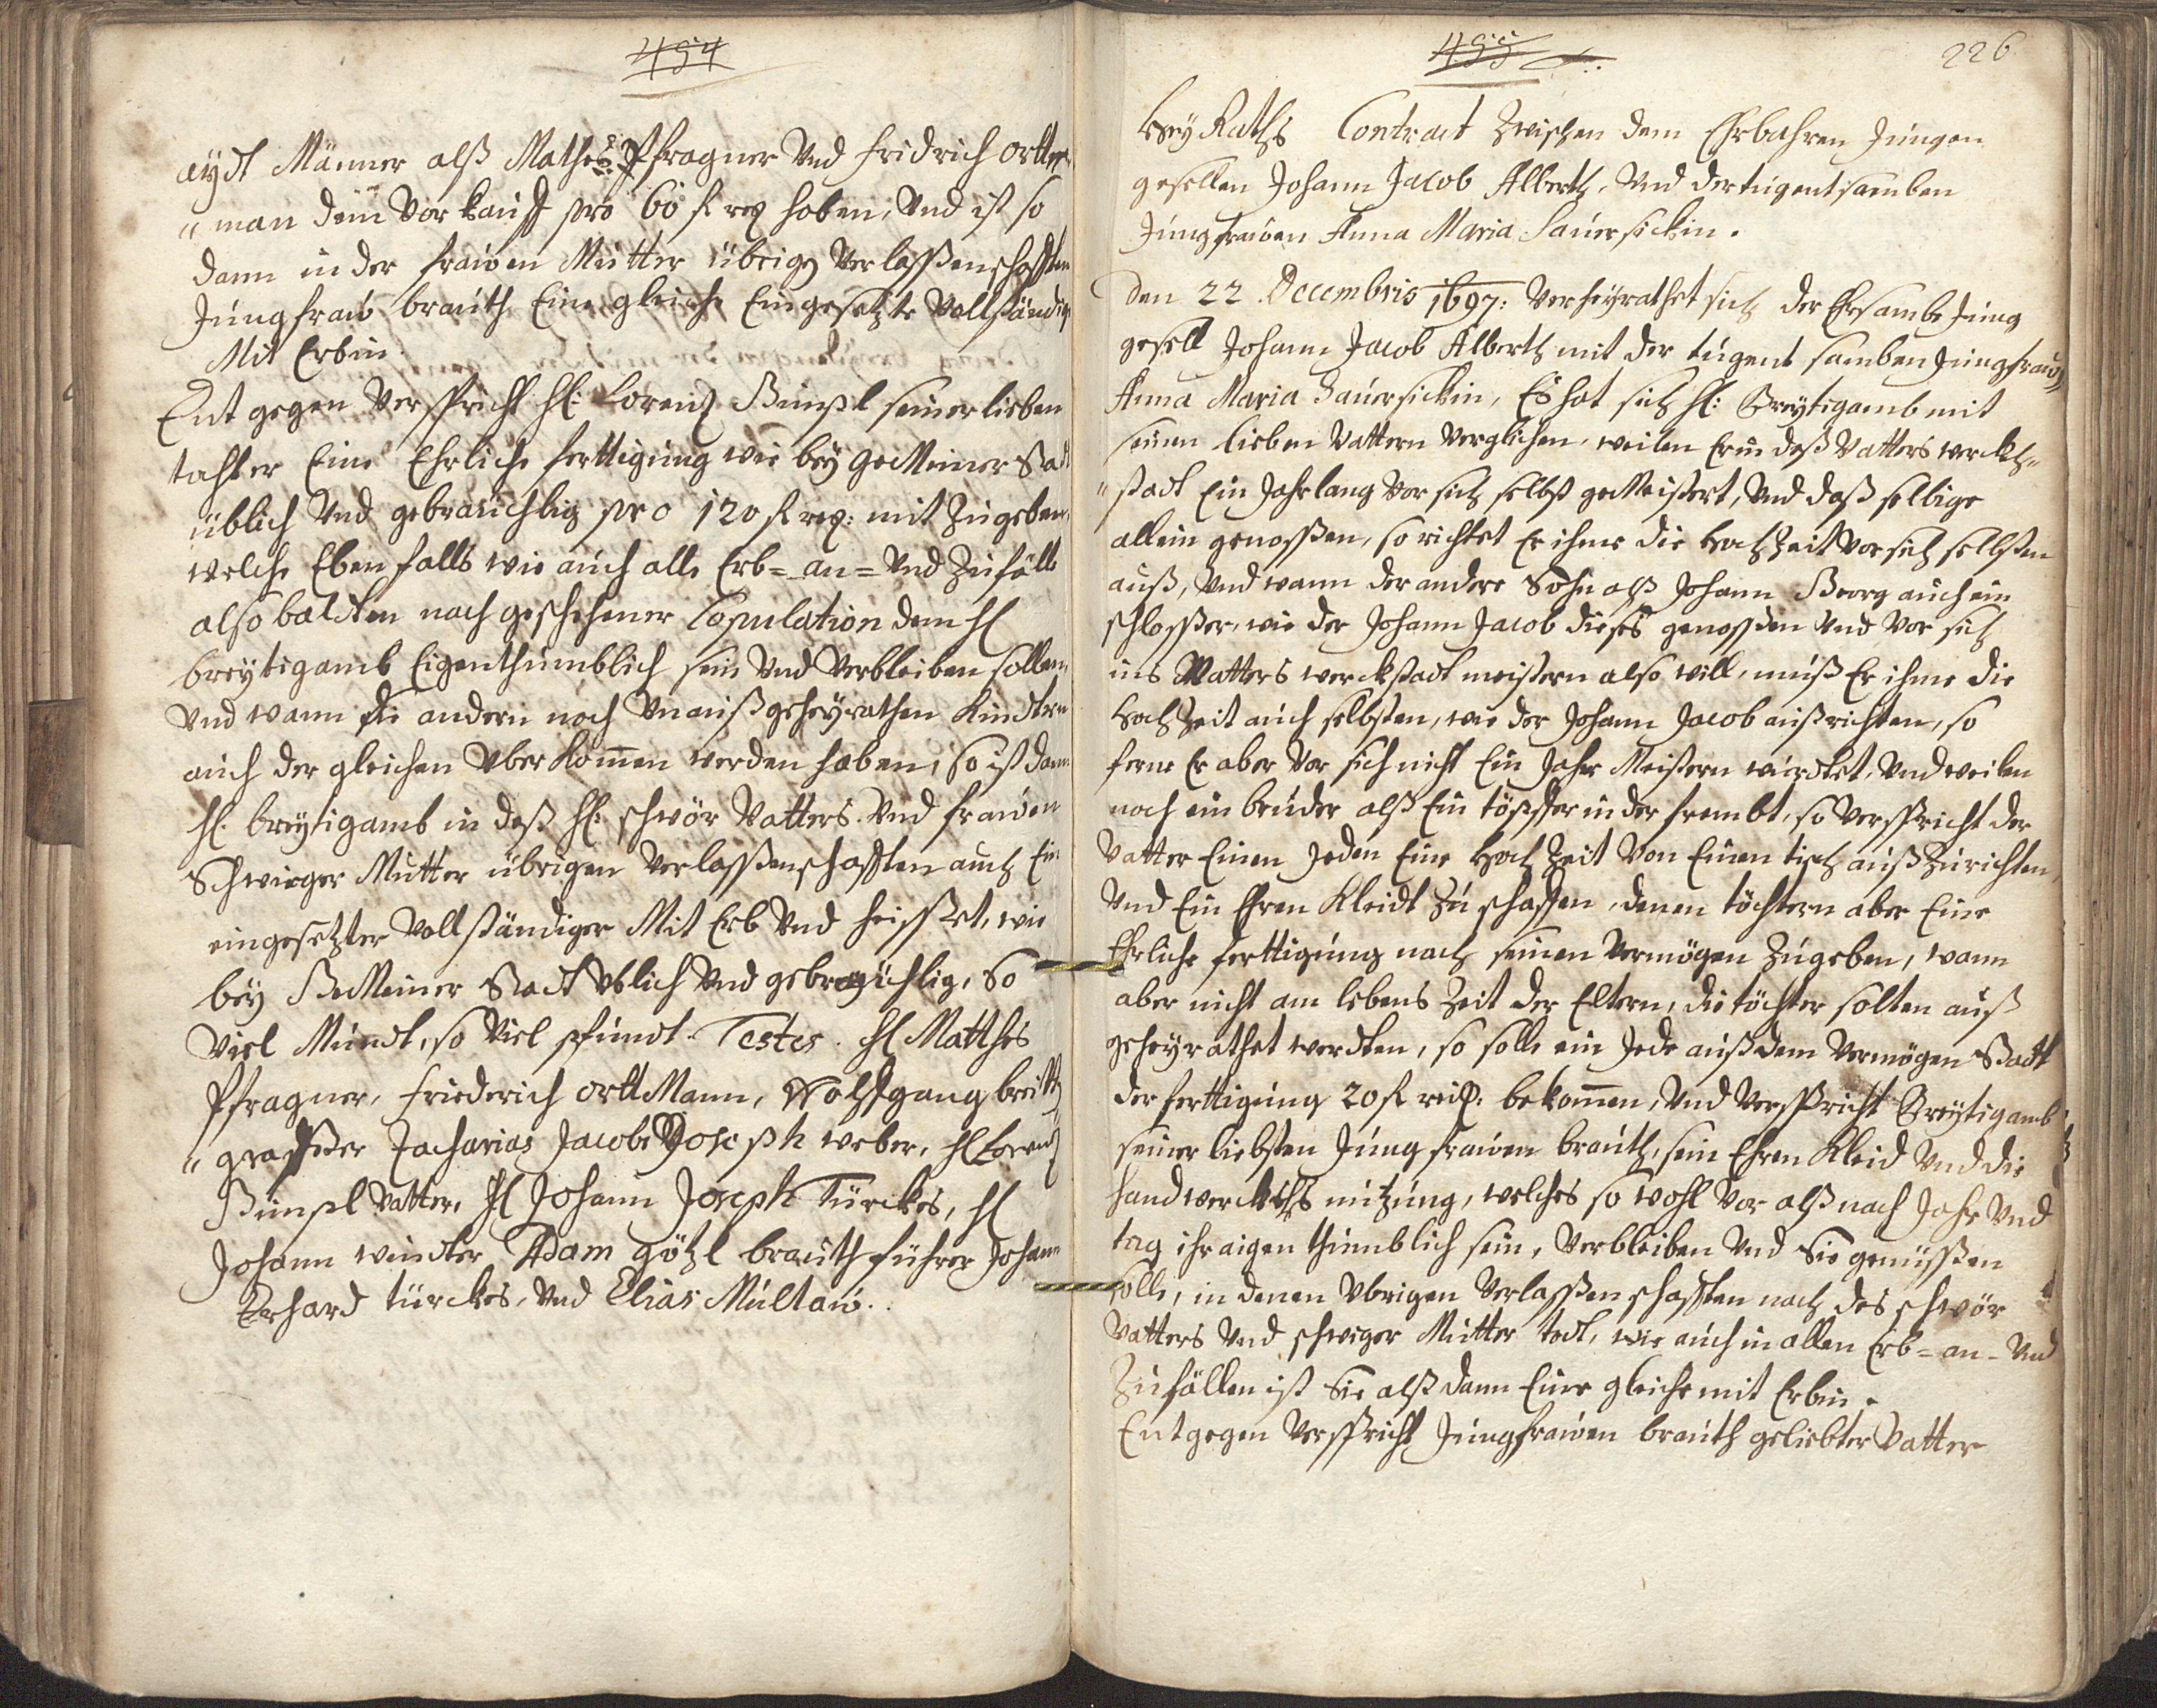 454
aydt Männer alß Mathes Pfragner Und fridrich ortten
"man dem Vorkauff pro 60 f rex haben, Und ist so
dann in der frawen Mutter übrigen Verlassenschafften
Jungfraw brauth Eine gleiche Eingesetzte Vollständige
Mit Erbin.
Entgegen Verspricht H: Lorenz Bimpl seiner lieben
tochter Eine Ehrliche ferttigung wie bey geMeiner Stadt
üblich Und gebräuchlig pro 120 f rex: mit Zugeben,
welche Eben falls wie auch alle Erb= an= Und Zufälle
also baldten nach geschehener Copulation dem H
breytigamb Eigenthumblich sein Und Verbleiben sollen
Und wann die andern noch Unaußgeheyrathen Kindter
auch der gleichen Uberkommen werden haben, so ist dann
H. breytigamb in deß H: schwör Vatters Und frawen
Schwieger Mutter übrigen Verlassenschafften auch Ein
eingesetzter Vollständiger Mit Erb Und heisset, wie
bey GeMeiner Stadt Üblich Und gebräuchlig, So
Viel Mundt, so Viel pfundt. Testes. H Matthes
Pfragner, Friederich ortt Mann, Wolffgang breitt
"graffßer Zacharias Jacob Joseph weber, H Lorenz
Bimpl Vatter, H Johann Joseph Türckes, H
Johann windter Adam götzl brauthführer Johann
Erhard türckes, Und Elias Multaw.
455
226
Hey Raths Contract Zwischen dem Ehrbahren Jungen
gesellen Johann Jacob Alberth, Und der tugentsamben
Jungfrawen Anna Maria Sauersickin.
Den 22. Decembris 1697: Verheyrathet sich der Ehrsambe Jung
gesell Johann Jacob Alberth mit der tugent samben Jungfrawen
Anna Maria Sauersickin, Es hat sich H: Breytigamb mit
seinen lieben Vattern Verglichen, weilen Er in deß Vatters werckh"
"stadt Ein Jahrlang Vor sich selbst geMeistert, Und daß selbige
allein genossen, so richtet Er ihme die Hochzeit Vor sich selbsten
auß, Und wann der andere Sohn alß Johann Georg auch ein
schlosser, wie der Johann Jacob dieses genossen Und Vor sich
ins Vatters werckstadt meistern also will, muß Er ihme die
Hochzeit auch selbsten, wie der Johann Jacob außrichten, so
ferne Er aber Vor sich nicht Ein Jahr Meistern würdtet, Und weilen
noch ein bruder alß Ein töpffer in der frembt, so Verspricht der
Vatter Einen Jeden Eine Hochzeit Von Einen tisch außZurichten,
Und Ein Ehren Kleidt Zu schaffen, denen töchtern aber Eine
Ehrliche ferttigung nach seinen Vermögen Zugeben, wann
aber nicht am lebens Zeit der Eltern, die töchter solten auß
geheyrathet werdten, so solle ein Jede auß dem Vermögen Stadt
der ferttigung 20 f rex. bekommen, Und Verspricht Breytigamb
seiner liebsten Jungfrawen brauth, sein Ehren Kleid Und die
handwercks nutzung, welches so wohl Vor alß nach Jahr Und
tag ihr aigenthumblich sein, Verbleiben Und Sie genüssen
solle, in denen Ubrigen Verlassenschafften nach des schwör
Vatters Und schwiger Mutter todt, wie auch in allen Erb= an= Und
Zufällen ist Sie alß dann Eine gleiche mit Erbin.
Entgegen Verspricht Jungfrawen brauth geliebter Vatter